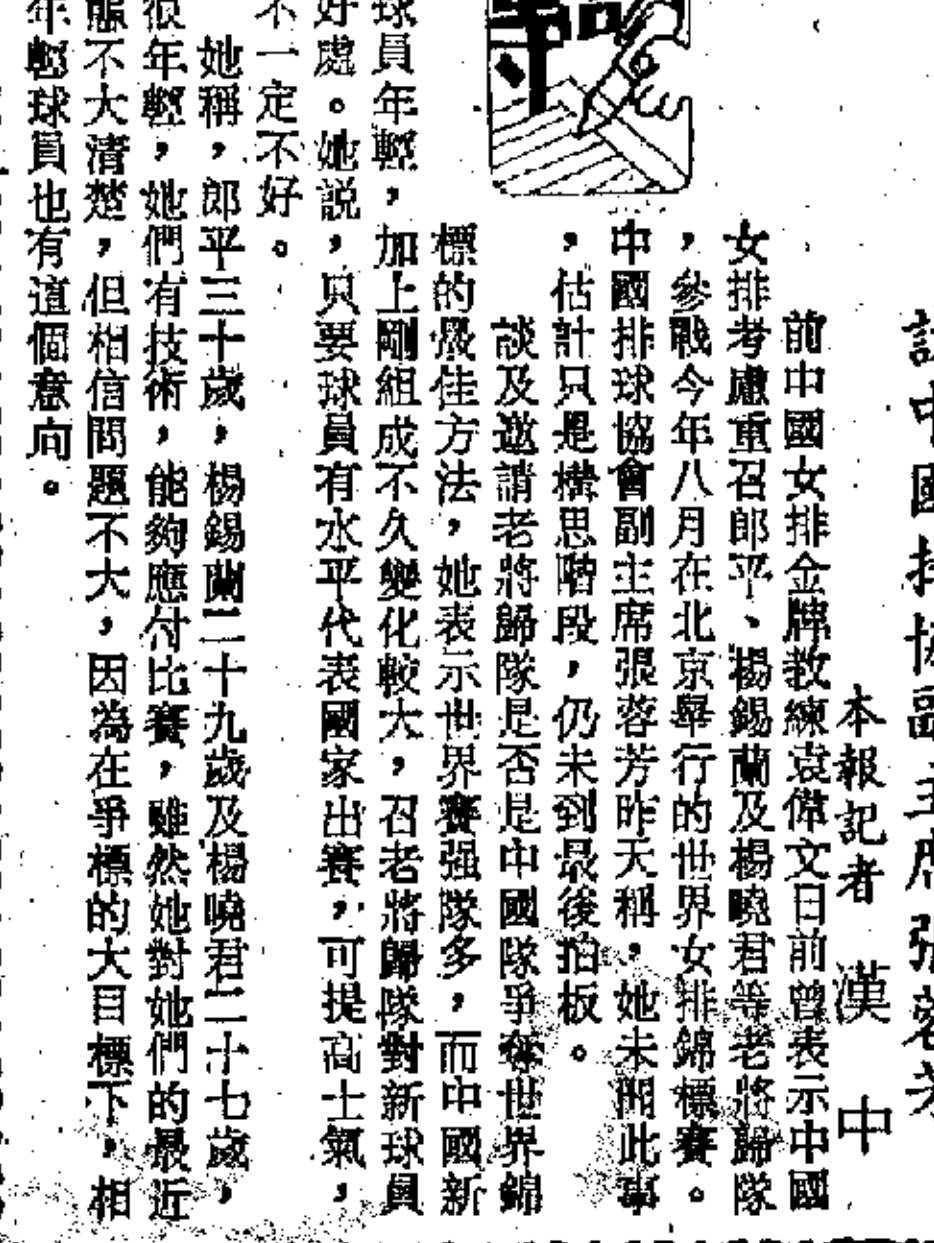 訪中國排協副主席張蓉芳
本報記者 漢中
前中國女排金牌教練袁偉文日前曾表示中國
女排考慮重召郎平、楊錫蘭及楊曉君等老將歸隊
，參戰今年八月在北京舉行的世界女排錦標賽。
中國排球協會副主席張蓉芳昨天稱，她未聞此事
，估計只是構思階段，仍未到最後拍板。
談及邀請老將歸隊是否是中國隊爭奪世界錦
標的最佳方法，她表示世界賽强隊多，而中國新
球員年輕，加上剛組成不久變化較大，召老將歸隊對新球員
好處。她說，只要球員有水平代表國家出賽，可提高士氣，
不一定不好。
她稱，郎平三十歲，楊錫蘭二十九歲及楊曉君二十七歲，
很年輕，她們有技術，能夠應付比賽，雖然她對她們的最近
態不大清楚，但相信問題不大，因為在爭標的大目標下，相
年輕球員也有這個意向。